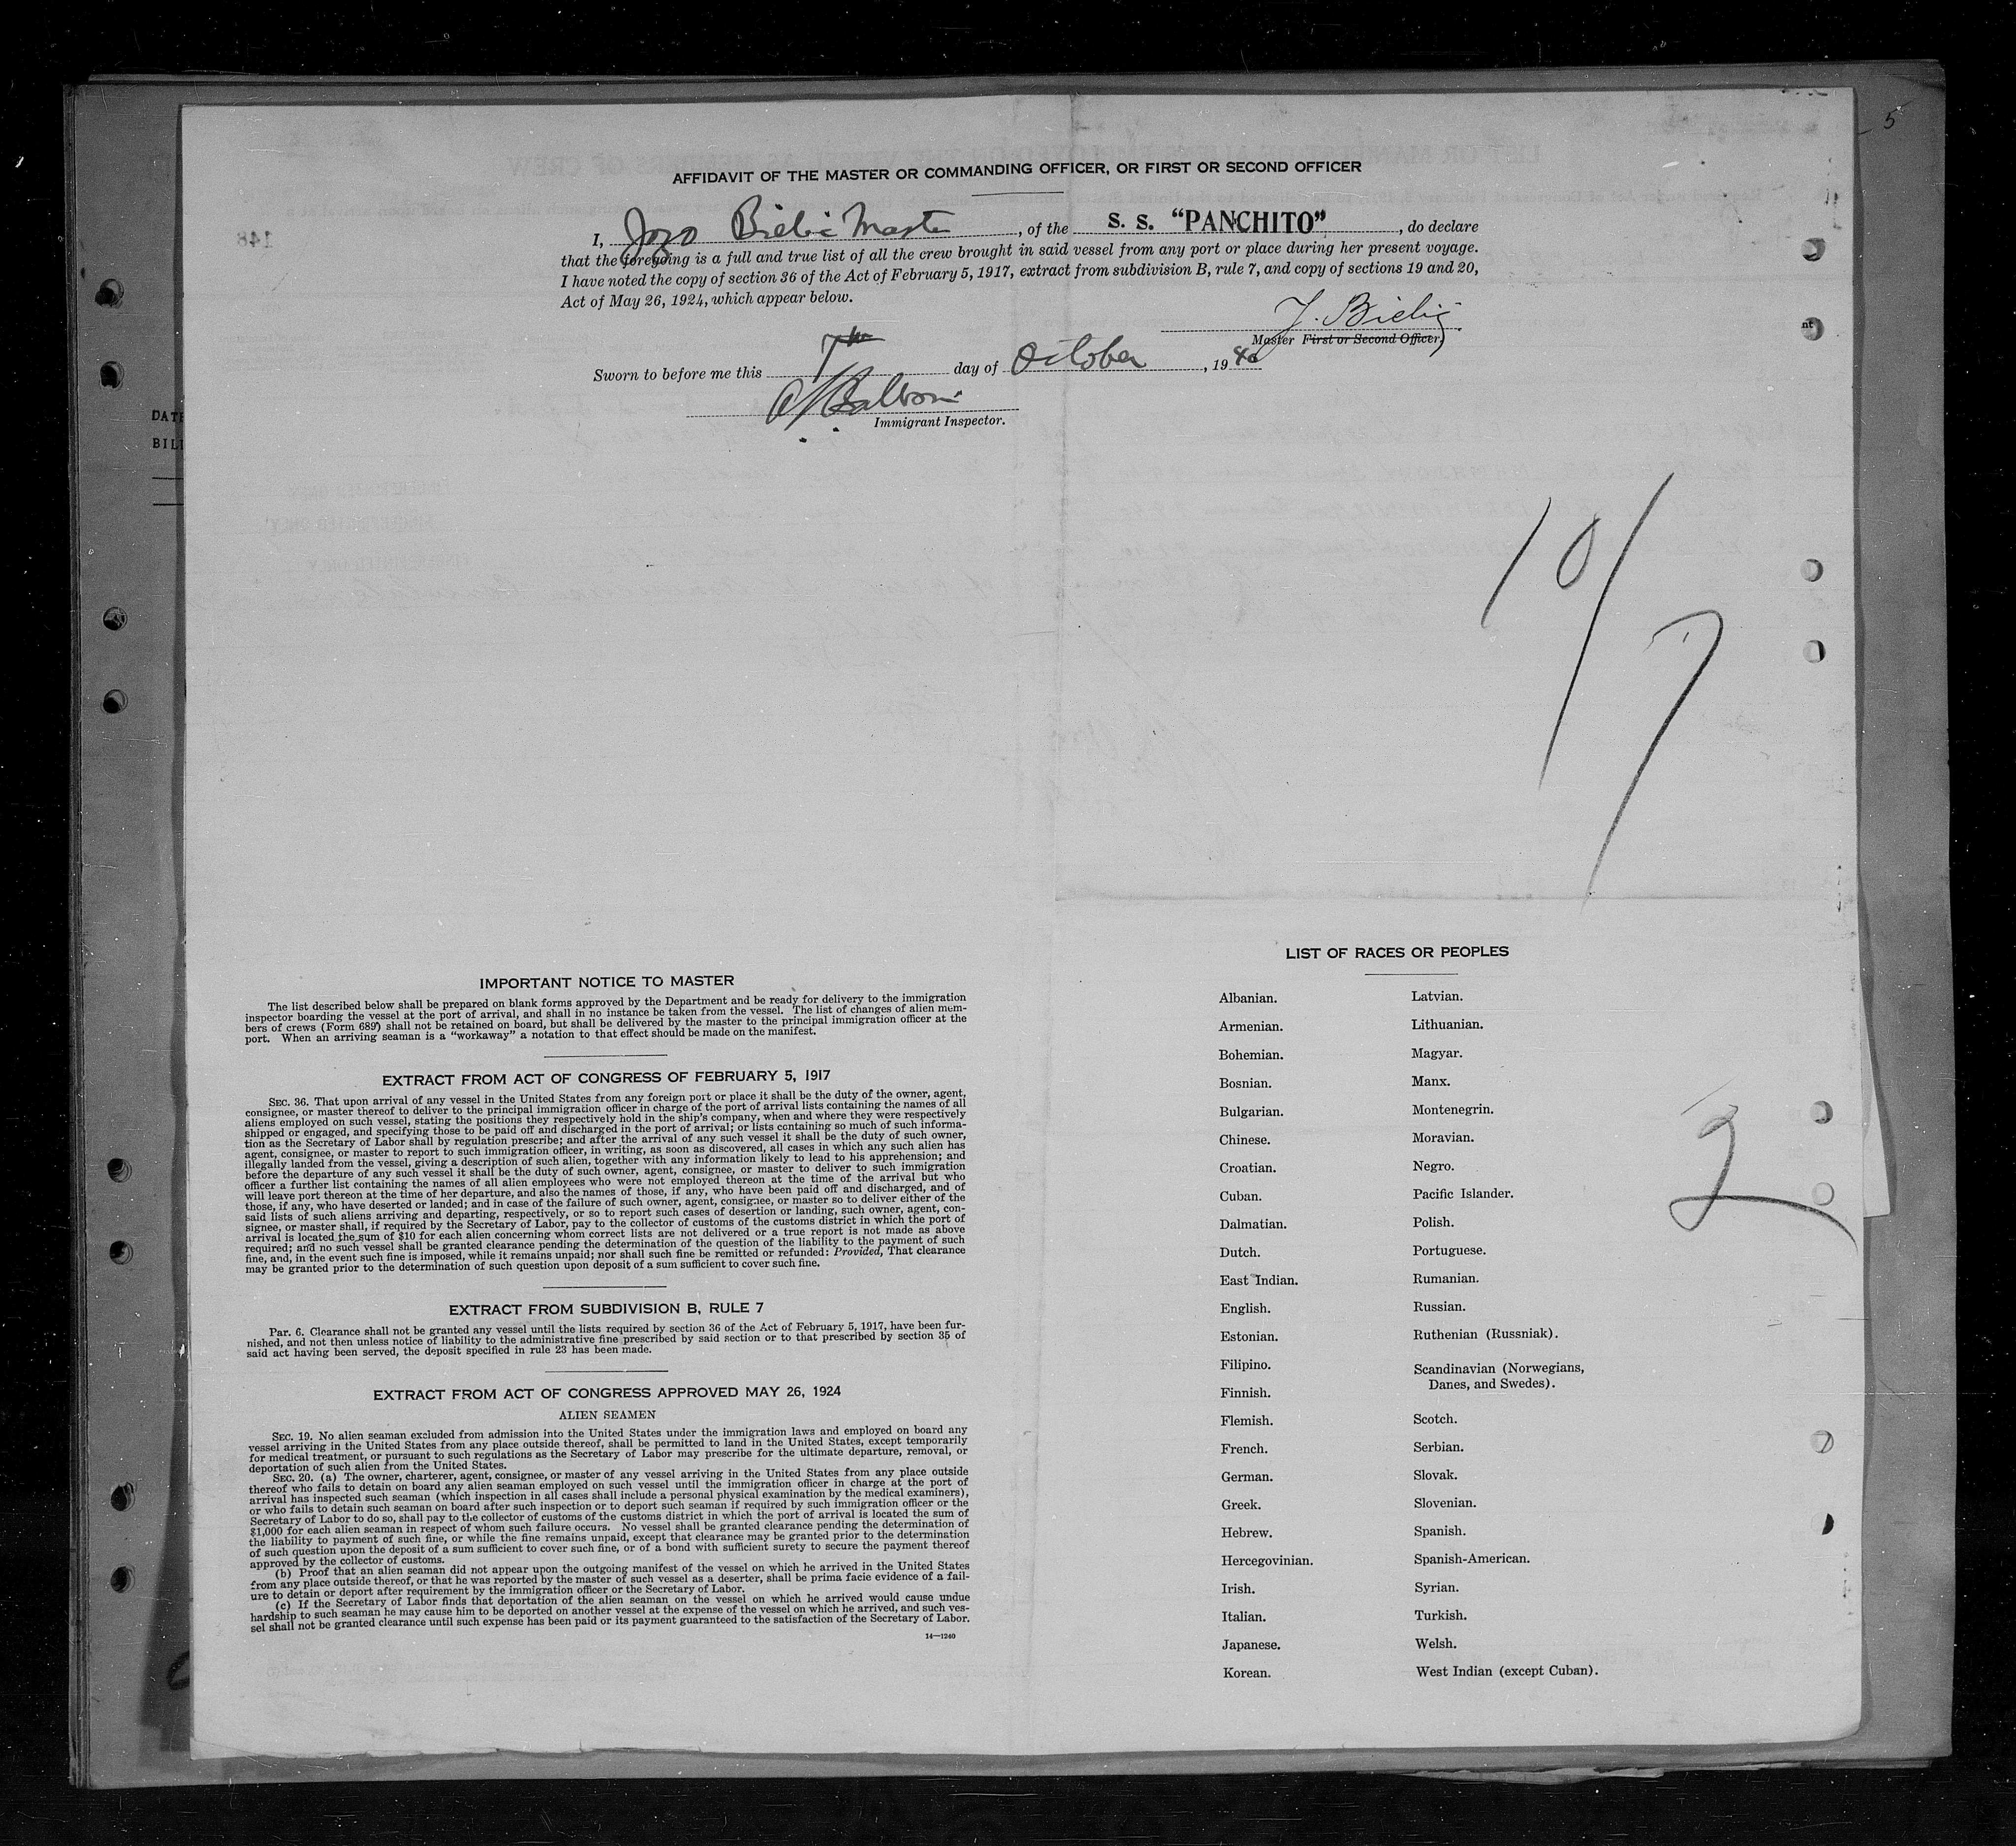 5
AFFIDAVIT OF THE MASTER OR COMMANDING OFFICER, OR FIRST OR SECOND OFFICER
I, Jozo Bielić Master, of the S. S. "PANCHITO", do declare
that the foregoing is a full and true list of all the crew brought in said vessel from any port or place during her present voyage.
I have noted the copy of section 36 of the Act of February 5, 1917, extract from subdivision B, rule 7, and copy of sections 19 and 20,
Act of May 26, 1924, which appear below.
J. Bielić
Master First or Second Officer.
Sworn to before me this 7th day of October, 1940
Immigrant Inspector.
DATE
BILL
nt
148
10/7
2
IMPORTANT NOTICE TO MASTER
The list described below shall be prepared on blank forms approved by the Department and be ready for delivery to the immigration
inspector boarding the vessel at the port of arrival, and shall in no instance be taken from the vessel. The list of changes of alien mem-
bers of crews (Form 689) shall not be retained on board, but shall be delivered by the master to the principal immigration officer at the
port. When an arriving seaman is a "workaway" a notation to that effect should be made on the manifest.
EXTRACT FROM ACT OF CONGRESS OF FEBRUARY 5, 1917
SEC. 36. That upon arrival of any vessel in the United States from any foreign port or place it shall be the duty of the owner, agent,
consignee, or master thereof to deliver to the principal immigration officer in charge of the port of arrival lists containing the names of all
aliens employed on such vessel, stating the positions they respectively hold in the ship's company, when and where they were respectively
shipped or engaged, and specifying those to be paid off and discharged in the port of arrival; or lists containing so much of such informa-
tion as the Secretary of Labor shall by regulation prescribe; and after the arrival of any such vessel it shall be the duty of such owner,
agent, consignee, or master to report to such immigration officer, in writing, as soon as discovered, all cases in which any such alien has
illegally landed from the vessel, giving a description of such alien, together with any information likely to lead to his apprehension; and
before the departure of any such vessel it shall be the duty of such owner, agent, consignee, or master to deliver to such immigration
officer a further list containing the names of all alien employees who were not employed thereon at the time of the arrival but who
will leave port thereon at the time of her departure, and also the names of those, if any, who have been paid off and discharged, and of
those, if any, who have deserted or landed; and in case of the failure of such owner, agent, consignee, or master so to deliver either of the
said lists of such aliens arriving and departing, respectively, or so to report such cases of desertion or landing, such owner, agent, con-
signee, or master shall, if required by the Secretary of Labor, pay to the collector of customs of the customs district in which the port of
arrival is located the sum of $10 for each alien concerning whom correct lists are not delivered or a true report is not made as above
required; and no such vessel shall be granted clearance pending the determination of the question of the liability to the payment of such
fine, and, in the event such fine is imposed, while it remains unpaid; nor shall such fine be remitted or refunded: Provided, That clearance
may be granted prior to the determination of such question upon deposit of a sum sufficient to cover such fine.
EXTRACT FROM SUBDIVISION B, RULE 7
Par. 6. Clearance shall not be granted any vessel until the lists required by section 36 of the Act of February 5, 1917, have been fur-
nished, and not then unless notice of liability to the administrative fine prescribed by said section or to that prescribed by section 35 of
said act having been served, the deposit specified in rule 23 has been made.
EXTRACT FROM ACT OF CONGRESS APPROVED MAY 26, 1924
ALIEN SEAMEN
SEC. 19. No alien seaman excluded from admission into the United States under the immigration laws and employed on board any
vessel arriving in the United States from any place outside thereof, shall be permitted to land in the United States, except temporarily
for medical treatment, or pursuant to such regulations as the Secretary of Labor may prescribe for the ultimate departure, removal, or
deportation of such alien from the United States.
SEC. 20. (a) The owner, charterer, agent, consignee, or master of any vessel arriving in the United States from any place outside
thereof who fails to detain on board any alien seaman employed on such vessel until the immigration officer in charge at the port of
arrival has inspected such seaman (which inspection in all cases shall include a personal physical examination by the medical examiners),
or who fails to detain such seaman on board after such inspection or to deport such seaman if required by such immigration officer or the
Secretary of Labor to do so, shall pay to the collector of customs of the customs district in which the port of arrival is located the sum of
$1,000 for each alien seaman in respect of whom such failure occurs. No vessel shall be granted clearance pending the determination of
the liability to payment of such fine, or while the fine remains unpaid, except that clearance may be granted prior to the determination
of such question upon the deposit of a sum sufficient to cover such fine, or of a bond with sufficient surety to secure the payment thereof
approved by the collector of customs.
(b) Proof that an alien seaman did not appear upon the outgoing manifest of the vessel on which he arrived in the United States
from any place outside thereof, or that he was reported by the master of such vessel as a deserter, shall be prima facie evidence of a fail-
ure to detain or deport after requirement by the immigration officer or the Secretary of Labor.
(c) If the Secretary of Labor finds that deportation of the alien seaman on the vessel on which he arrived would cause undue
hardship to such seaman he may cause him to be deported on another vessel at the expense of the vessel on which he arrived, and such ves-
sel shall not be granted clearance until such expense has been paid or its payment guaranteed to the satisfaction of the Secretary of Labor.
14—1240
LIST OF RACES OR PEOPLES
Albanian.
Armenian.
Bohemian.
Bosnian.
Bulgarian.
Chinese.
Croatian.
Cuban.
Dalmatian.
Dutch.
East Indian.
English.
Estonian.
Filipino.
Finnish.
Flemish.
French.
German.
Greek.
Hebrew.
Hercegovinian.
Irish.
Italian.
Japanese.
Korean.
Latvian.
Lithuanian.
Magyar.
Manx.
Montenegrin.
Moravian.
Negro.
Pacific Islander.
Polish.
Portuguese.
Rumanian.
Russian.
Ruthenian (Russniak).
Scandinavian (Norwegians,
Danes, and Swedes).
Scotch.
Serbian.
Slovak.
Slovenian.
Spanish.
Spanish-American.
Syrian.
Turkish.
Welsh.
West Indian (except Cuban).